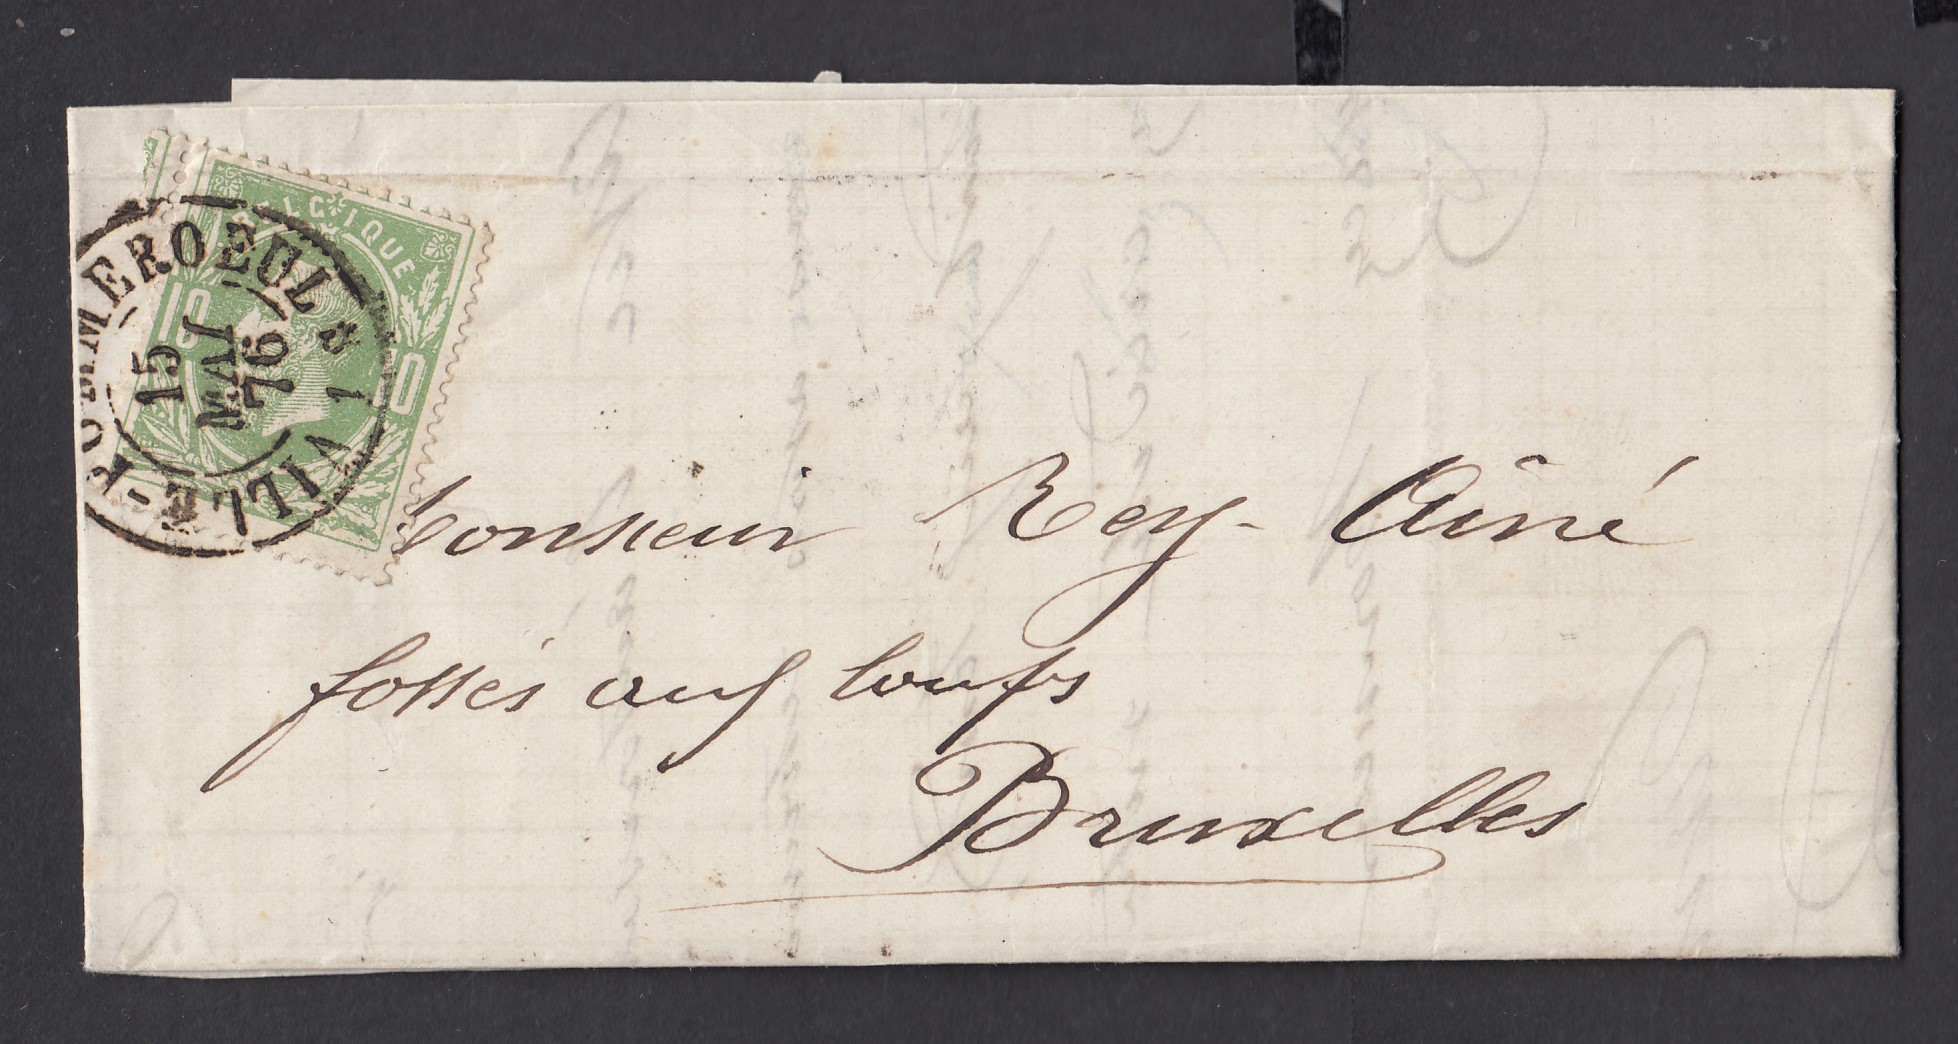 BELGIQUE
10 10
VILLE-POMMEROEUL
15
MAI
76
1
Monsieur Rey Ainé
fossés aux loups
Bruxelles